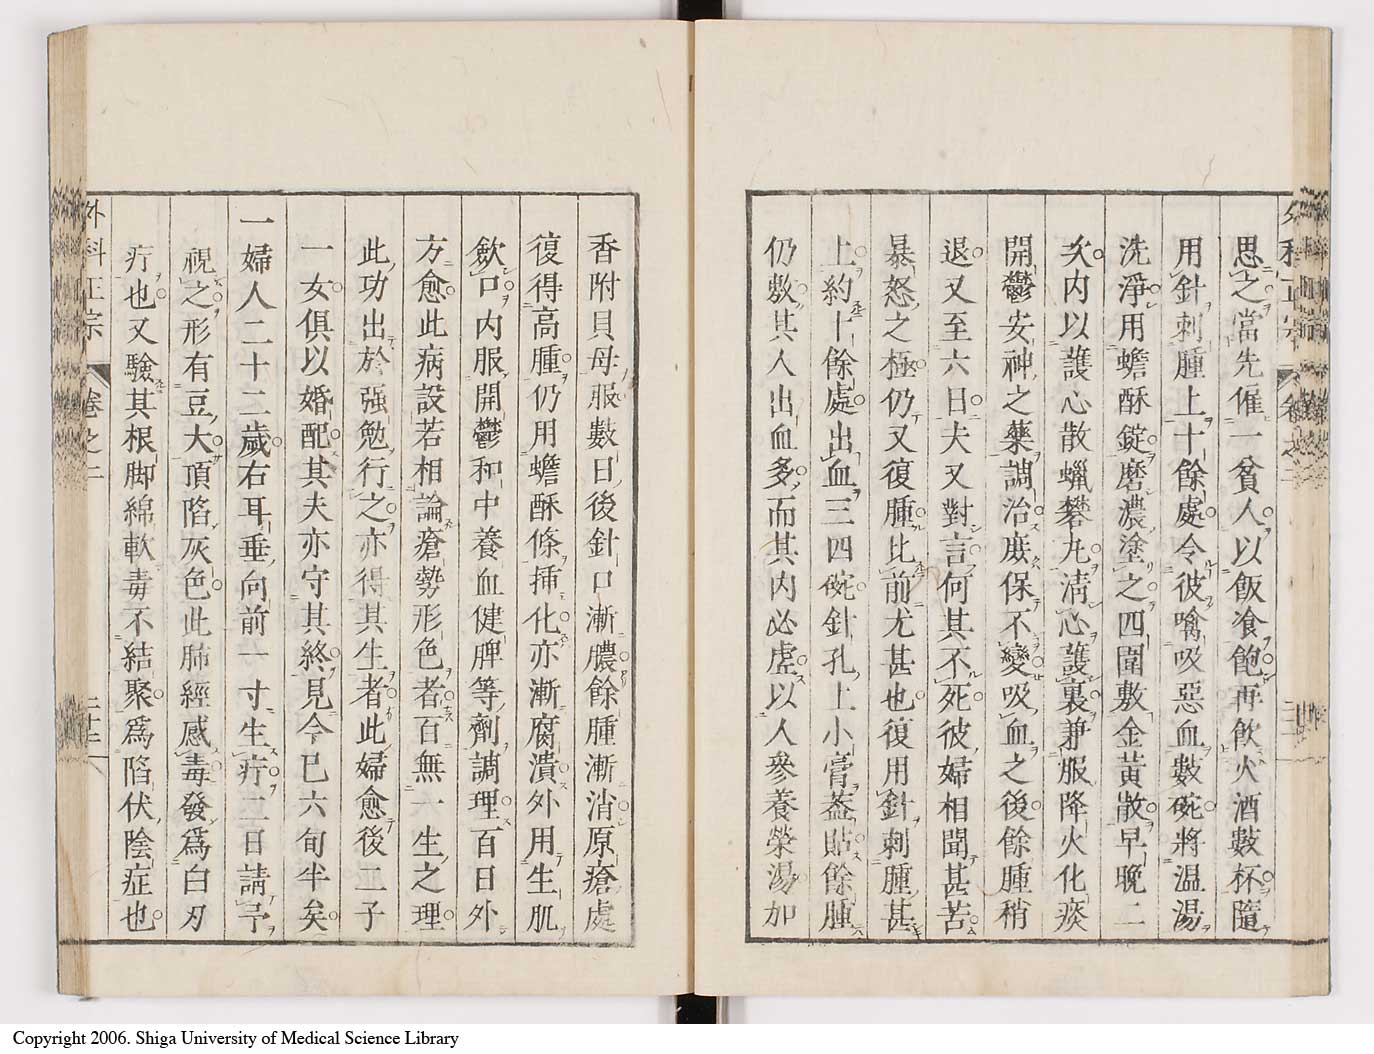 思之當先僱一貧人以飯飡飽再飲火酒數杯隨
用針刺腫上十餘處令彼噙吸惡血數碗將温湯
洗淨用蟾酥錠磨濃塗之四圍敷金黄散早晚二
次内以護心散蠟礬丸清心護裏兼服降火化痰
開鬱安神之藥調治庶保不變吸血之後餘腫稍
退又至六日夫又對言何其不死彼婦相聞甚苦
暴怒之極仍又復腫比前尤甚也復用針刺腫甚
上約十餘處出血三四碗針孔上小膏葢貼餘腫
仍敷其人出血多而其内必虛以人參養榮湯加
香附貝母服數日後針口漸膿餘腫漸消原瘡處
復得高腫仍用蟾酥條挿化亦漸腐潰外用生肌
歛口内服開鬱和中養血健脾等劑調理百日外
方愈此病設若相論瘡勢形色者百無一生之理
此功出於强勉行之亦得其生者此婦愈後二子
一女俱以婚配其夫亦守其終見今巳六旬半矣
一婦人二十二歲右耳垂向前一寸生疔二日請予
視之形有豆大頂陷灰色此肺經感毒發爲白刃
疔也又驗其根脚綿軟毒不結聚爲陷伏陰症也
外科正宗 卷之二 二十二